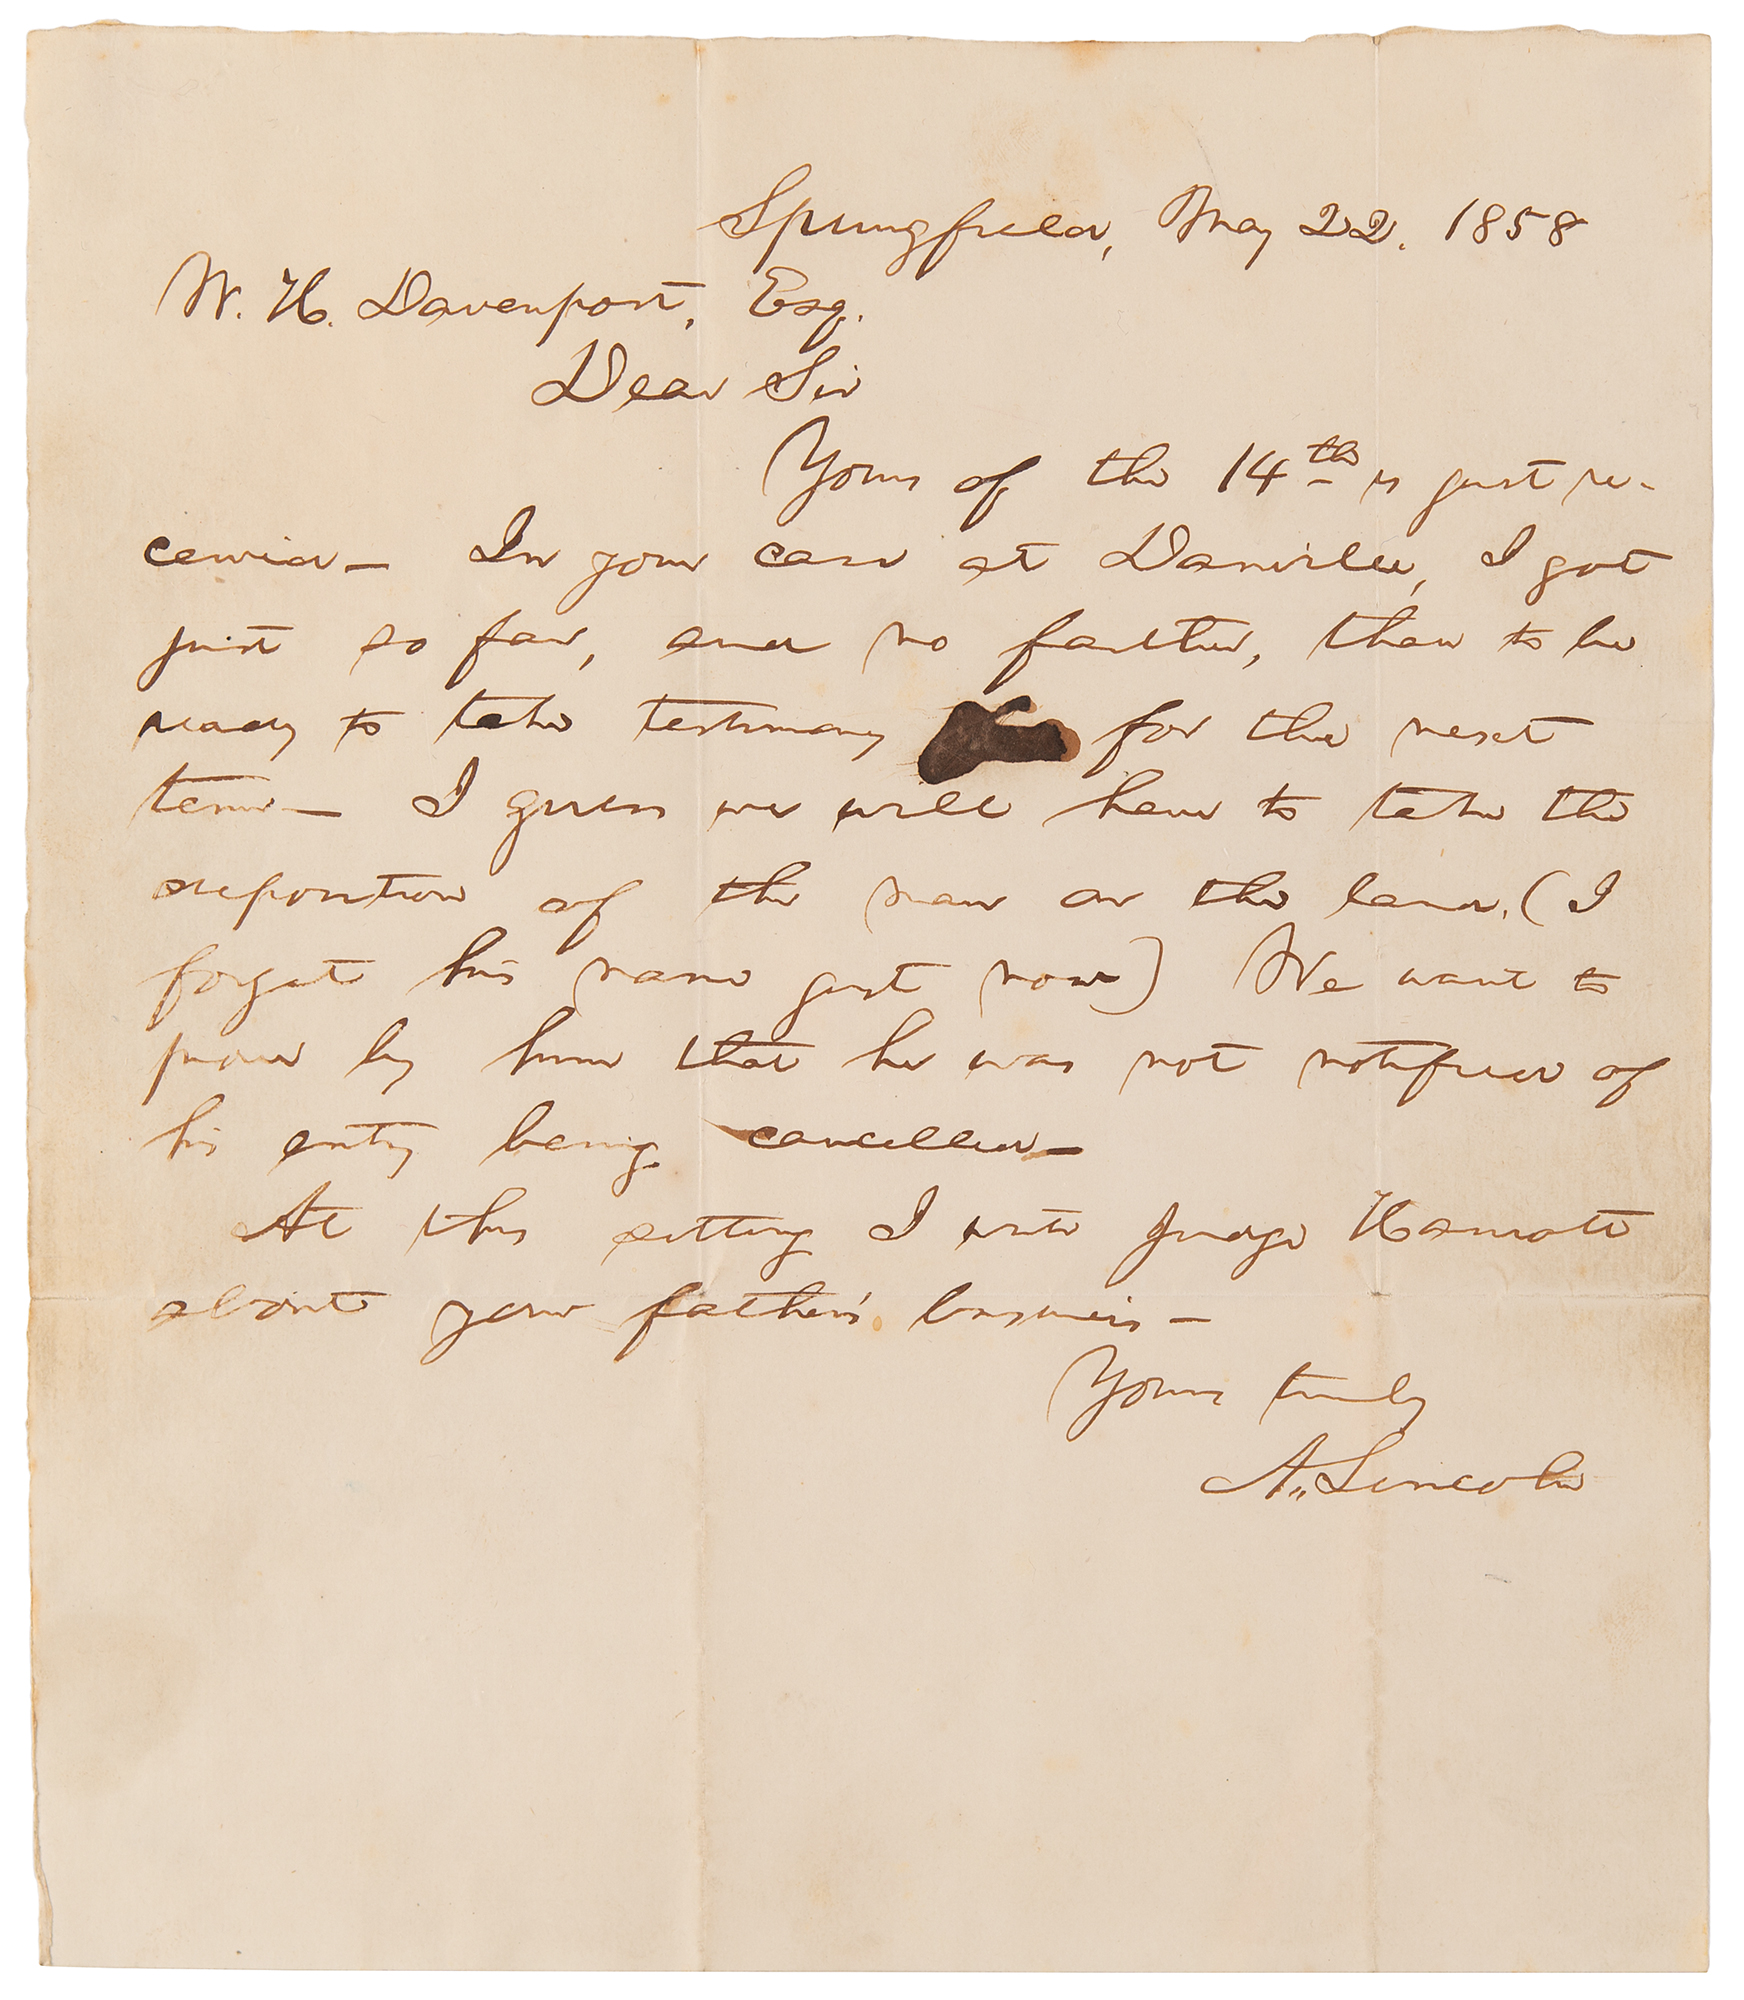 Springfield, May 22. 1858
W. H. Davenport, Esq.
Dear Sir
Yours of the 14th is just re-
ceived— In your case at Danville, I got
just so far, and no farther, than to be
ready to take testimony for the next
term— I guess we will have to take the
deposition of the man on the land. (I
forget his name just now) We want to
prove by him that he was not notified of
his entry being cancelled—
At this sitting I write Judge
about your father's business—
Yours truly
A. Lincoln